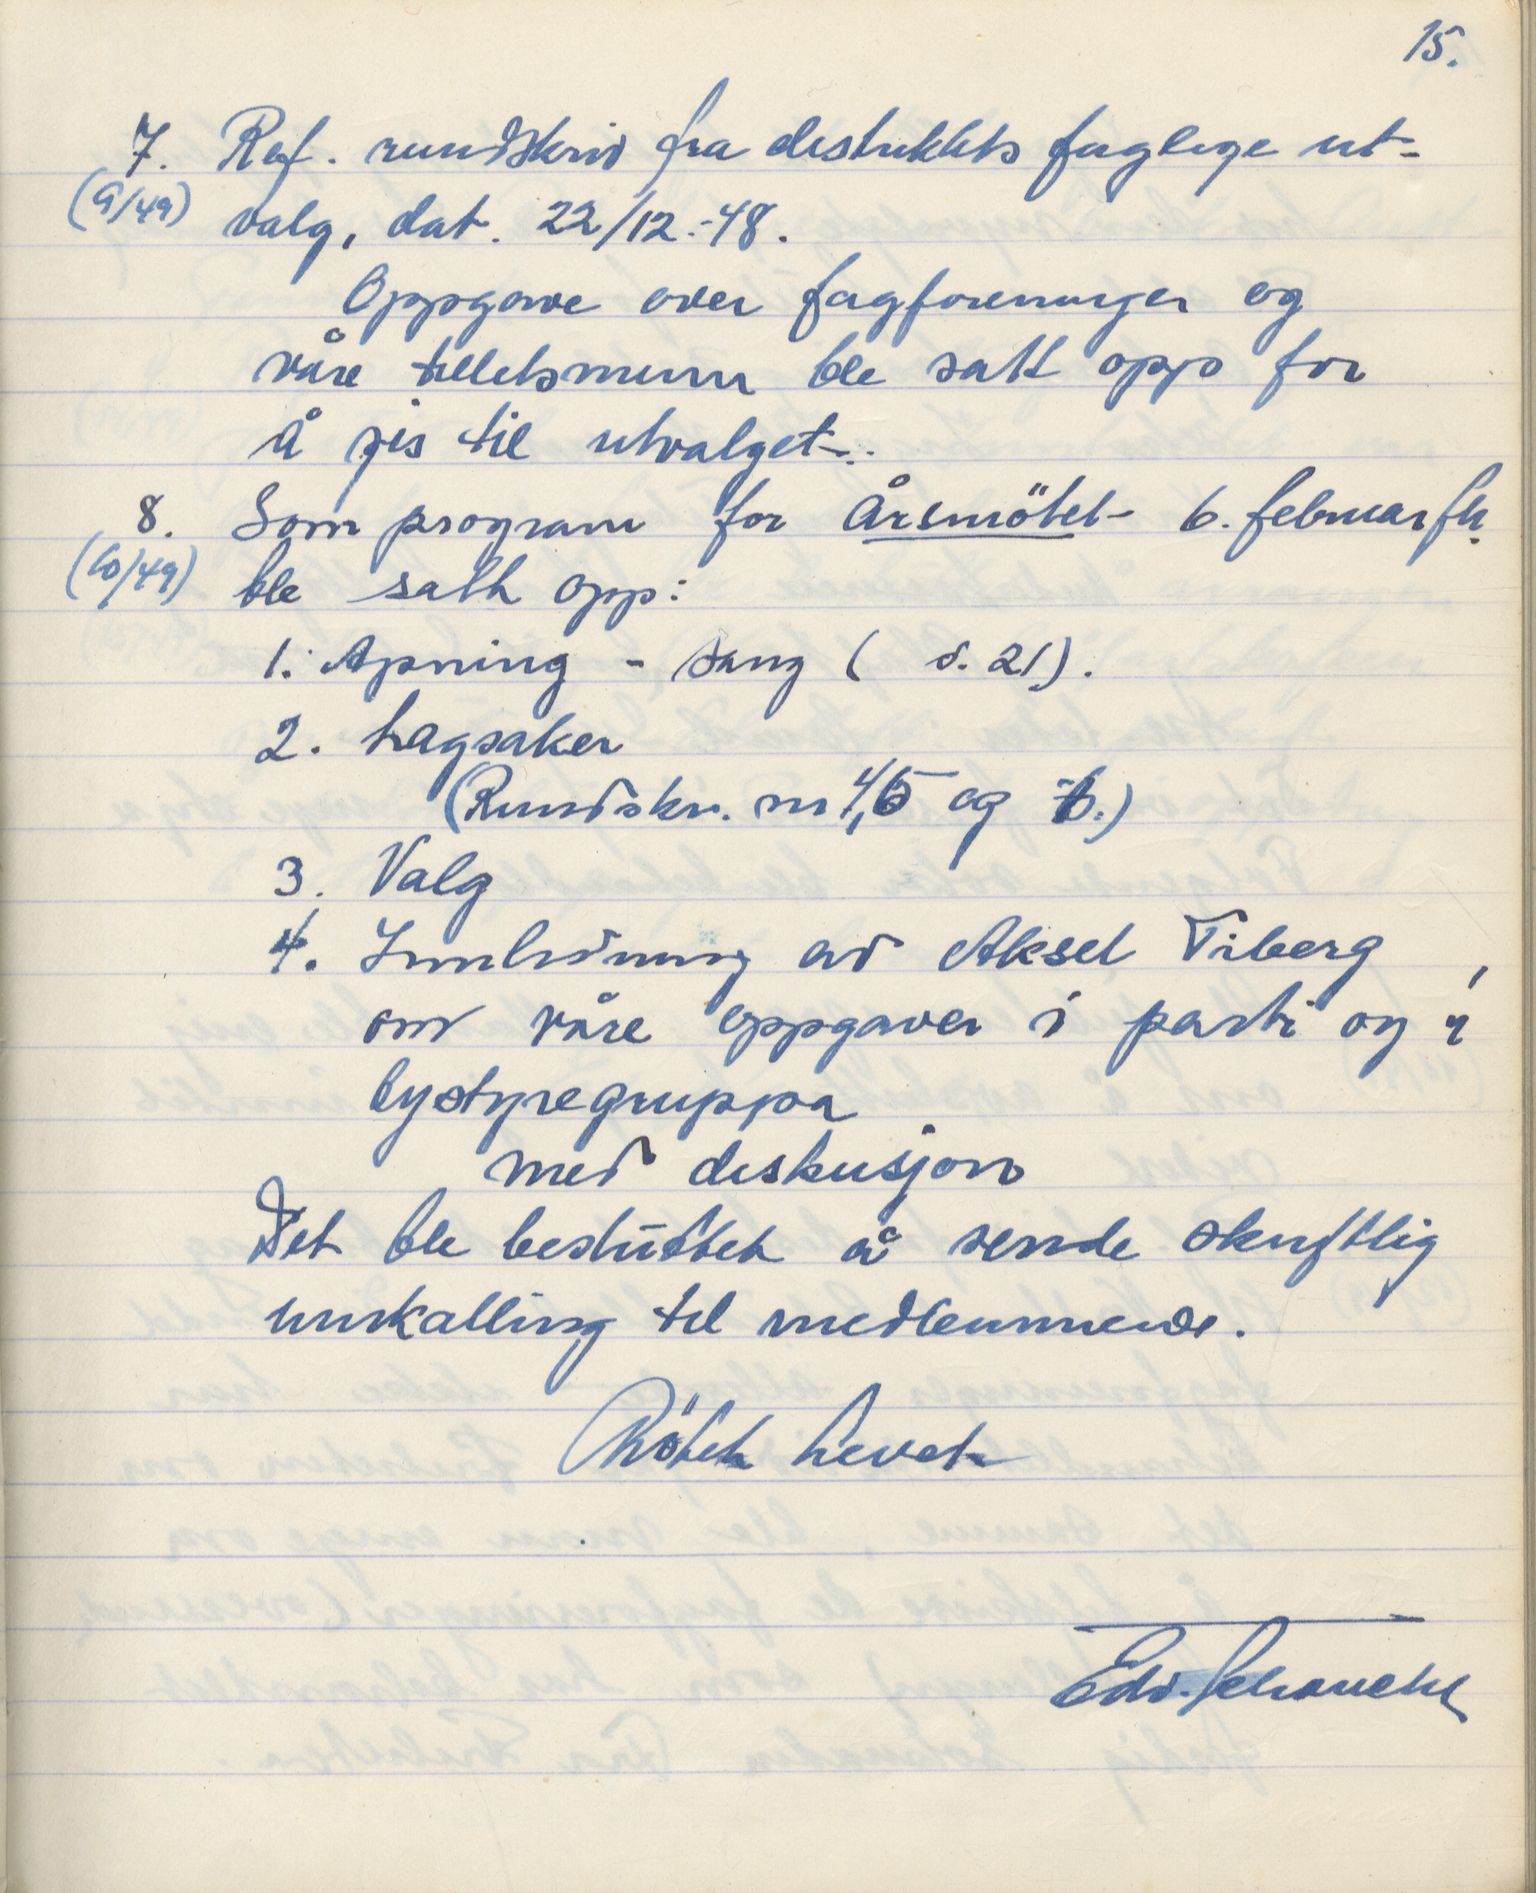 15.
7. Ref. rundskriv fra distriktets faglige ut-
(9/49) valg, dat. 22/12.-48.
Oppgave over fagforeninger og
våre tillitsmenn ble satt opp for
å gis til utvalget.
8. Som program for Årsmötet 6. februar fk.
(10/49) ble satt opp:
1. Apning - sang ( s. 21).
2. Lagsaker
(Rundskr. nr 4, 5 og 6.)
3. Valg
4. Innledning av Aksel Tiberg
om våre oppgaver i parti og i
bystyregruppa
med diskusjon
Det ble besluttet å sende skriftlig
innkalling til medlemmene.
Mötet hevet
Edv.